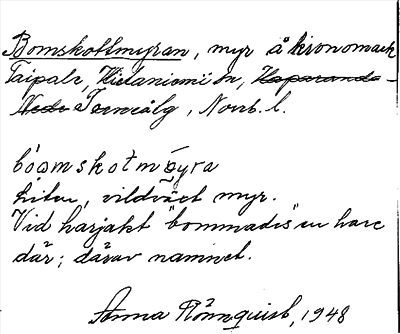 Bomskottmyran, myr å kronomark
Taipale, Hietaniemi sn, Haparanda-
Nedr Torneålg, Norrb. l.
bóomskotmo̲yra
liten, vildväxt myr.
Vid harjakt "bommades" en hare
där; därav namnet.
Anna Rönnquist, 1948